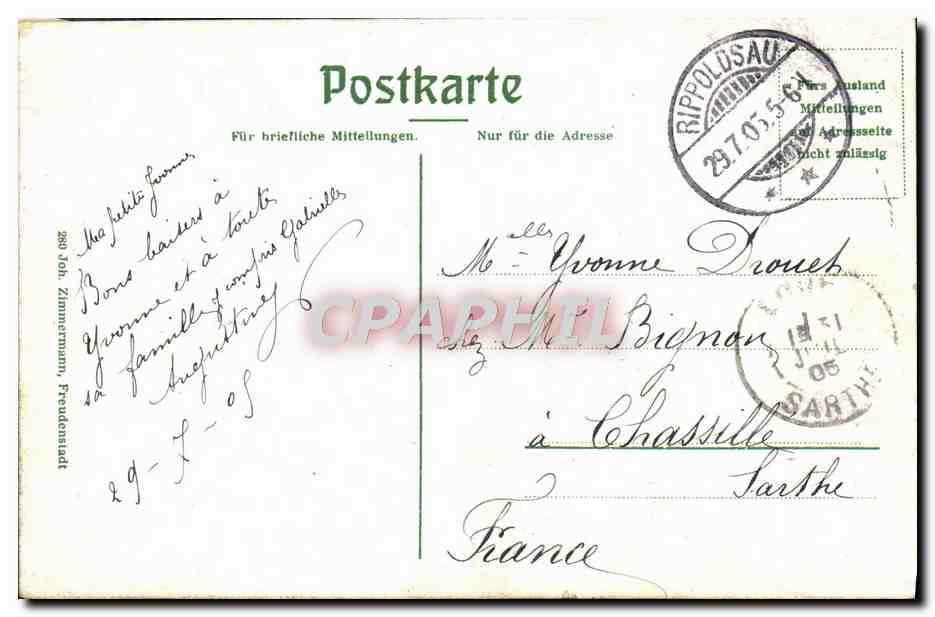 Postkarte
Für briefliche Mitteilungen.
Nur für die Adresse
Fürs Ausland
Mitteilungen
auf Adressseite
nicht zulässig
RIPPOLDSAU
29.7.05.5-6N
Ma petite Yvonne
Bons baisers à
Yvonne et à toute
sa famille y compris Gabrielle
Augustine
29-7-05
280 Joh. Zimmermann, Freudenstadt
Melles Yvonne Drouet
chez Mr Bignon
à Chassillé
Sarthe
France
JUIL
05
SARTHE
CPAPHIL